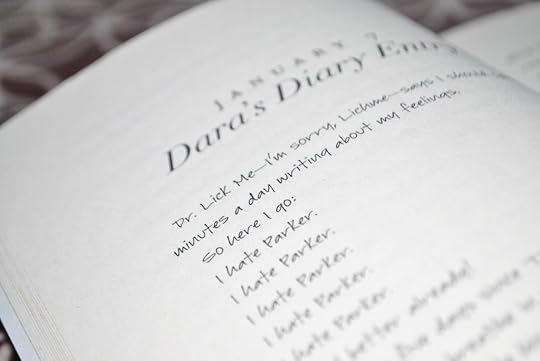 JANUARY 7
Dara's Diary Entry
Dr. Lick Me—I'm sorry, Lichme—says I should
minutes a day writing about my feelings.
So here I go:
I hate Parker.
I hate Parker.
I hate Parker.
I hate Parker.
better already!
five days since
breathe